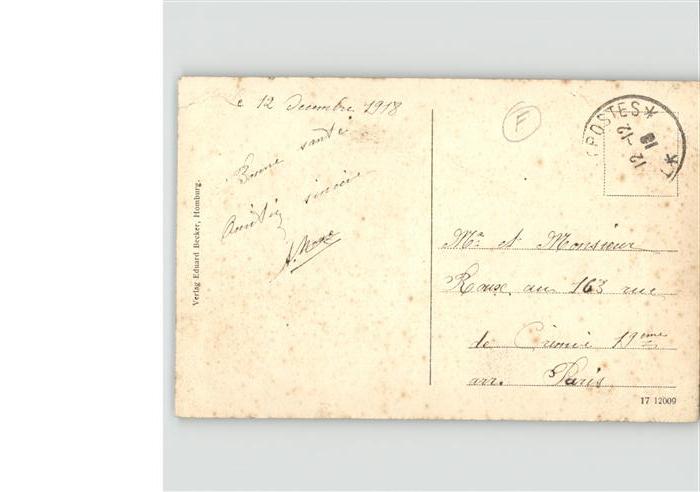 le 12 decembre 1918
Bonne santé
Amitié sincère
Verlag Eduard Becker, Homburg.
F
POSTES *
12-12
18
*
Mme et Monsieur
Roux, au 163 rue
de Crimé 19eme
arr. Paris
17 12009